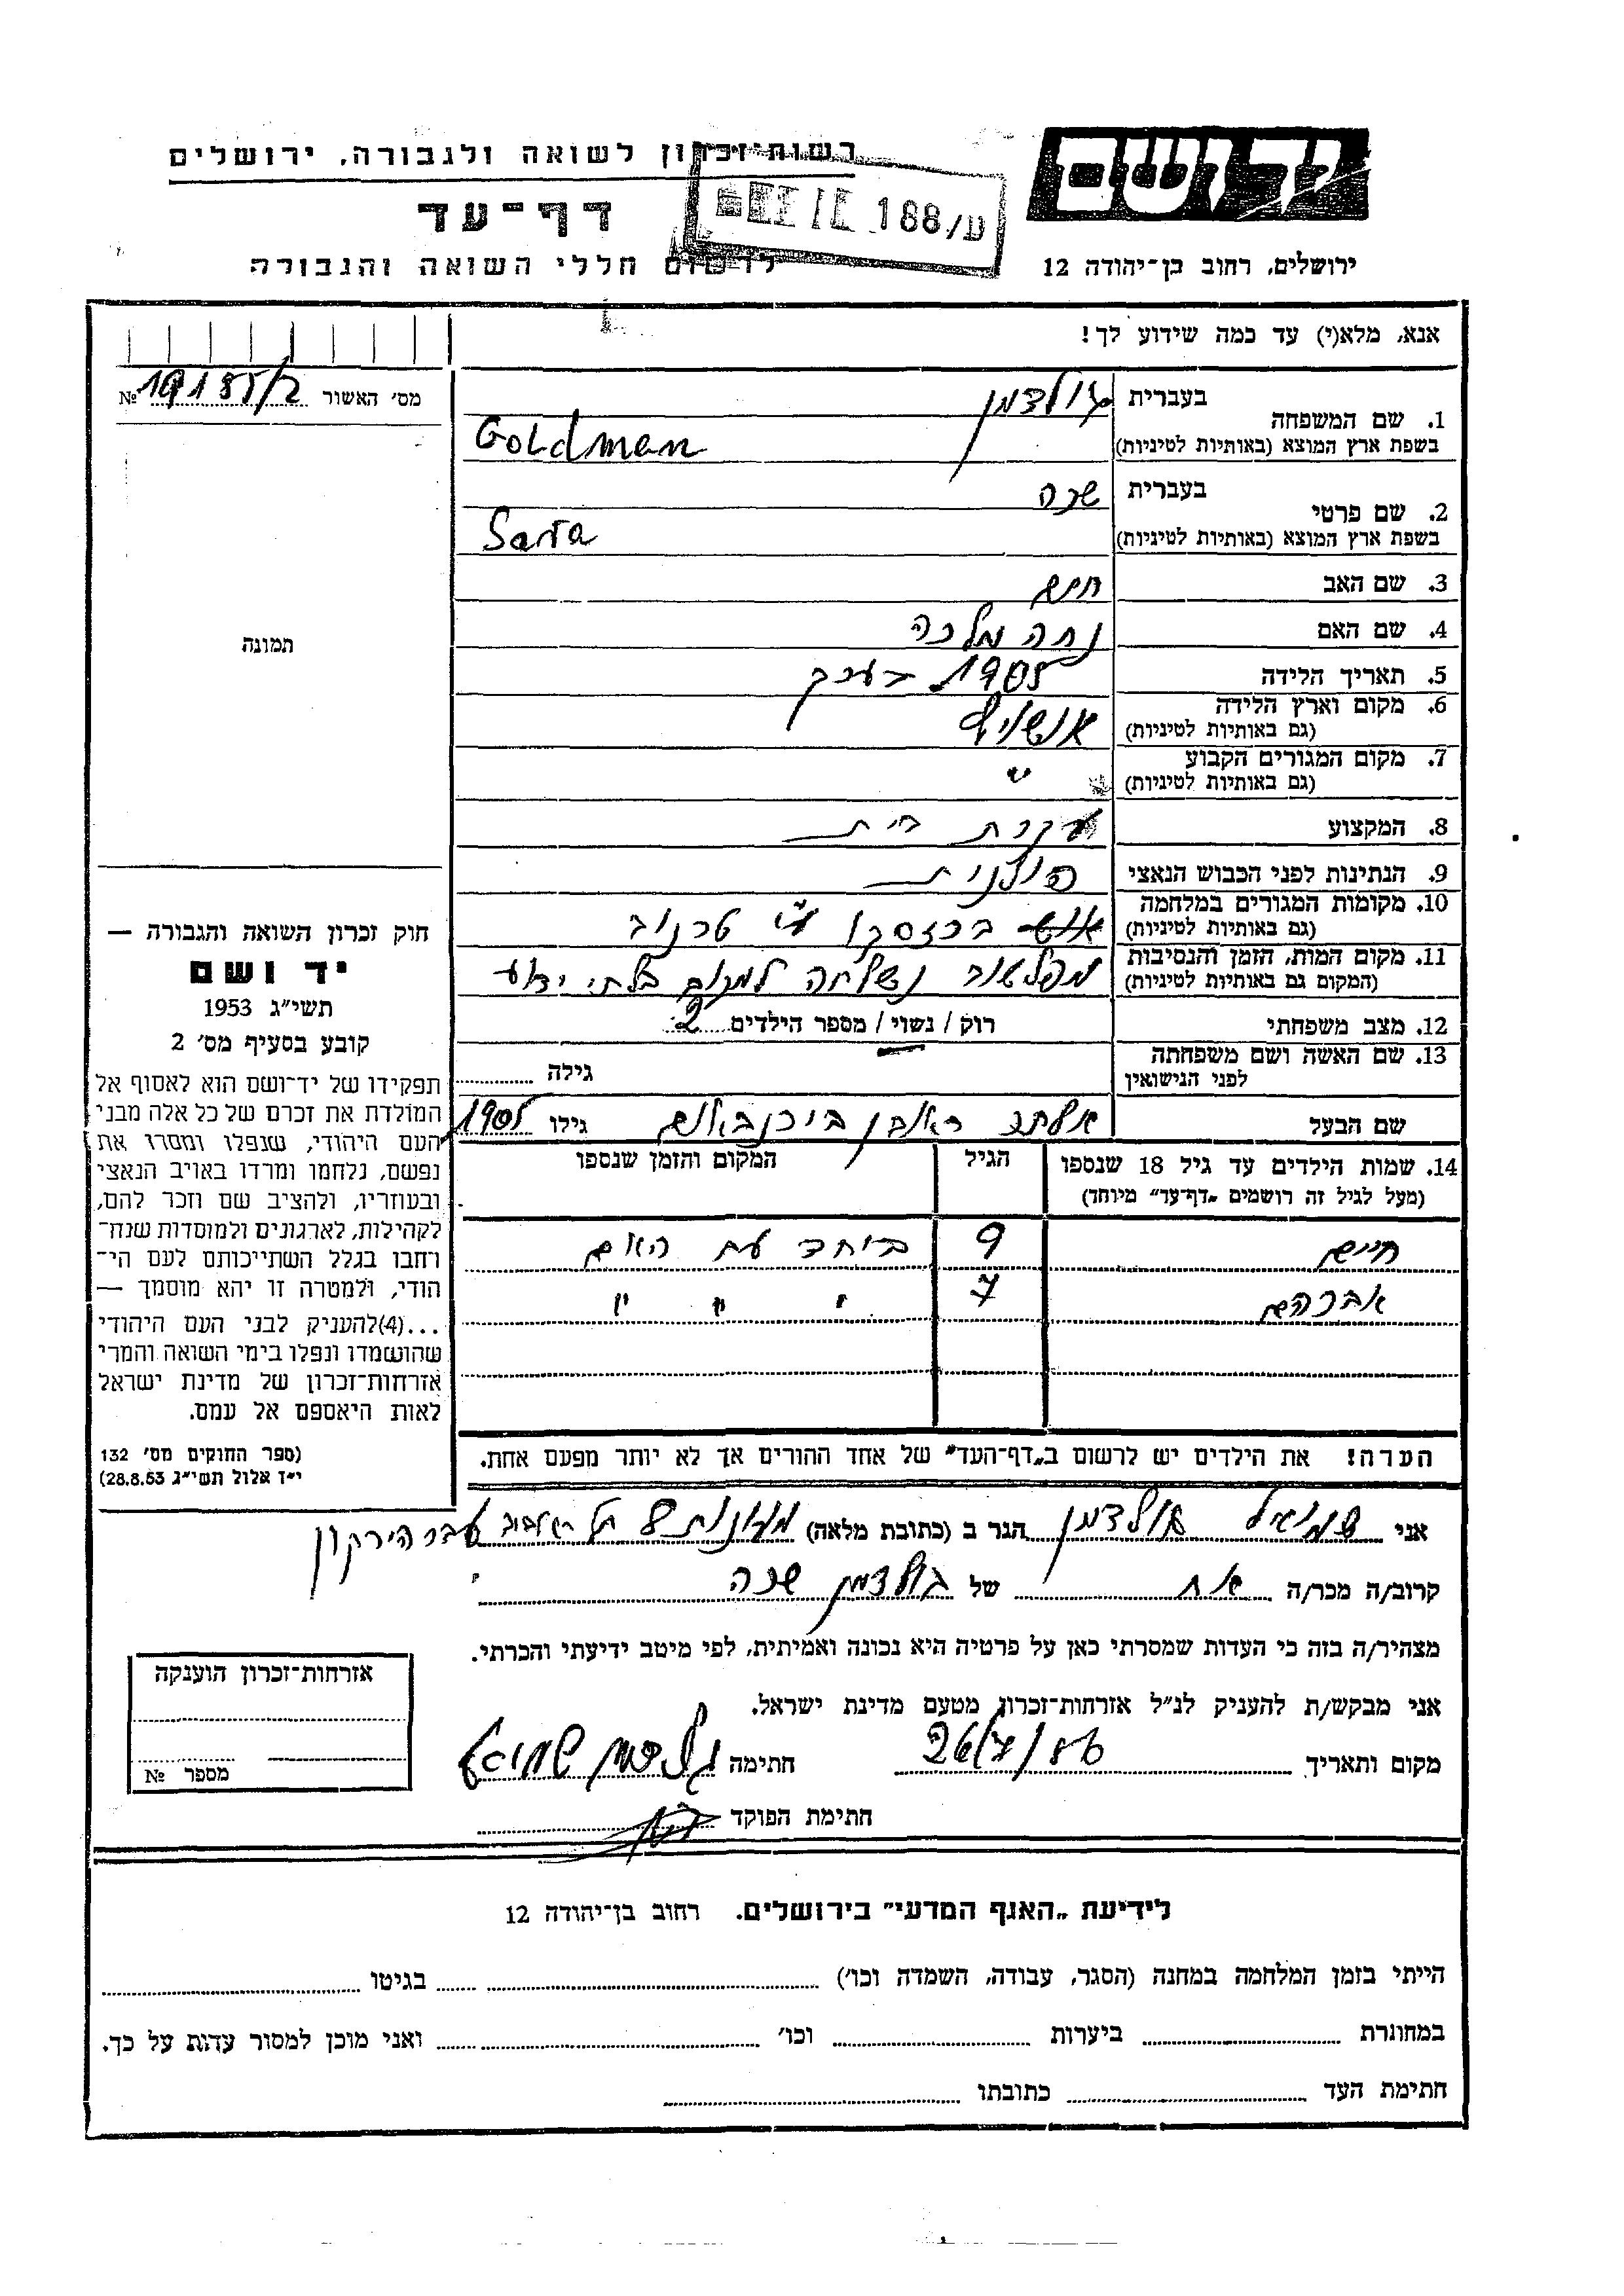 רשות־זכרון לשואה ולגבורה, ירושלים
יד ושם
ע/188
דף־עד
לרשום חללי השואה והגבורה
ירושלים, רחוב בן־יהודה 12
אנא, מלא(י) עד כמה שידוע לך!
מס׳ האשור №
1. שם המשפחה
בעברית גולדמן
בשפת ארץ המוצא (באותיות לטיניות) Goldman
2. שם פרטי
בעברית שרה
בשפת ארץ המוצא (באותיות לטיניות) Sara
3. שם האב חיים
4. שם האם נחה מלכה
5. תאריך הלידה 1905 בערך
6. מקום וארץ הלידה
(גם באותיות לטיניות)
7. מקום המגורים הקבוע "
(גם באותיות לטיניות)
8. המקצוע עקרת בית
9. הנתינות לפני הכבוש הנאצי פולנית
10. מקומות המגורים במלחמה בז׳סקו ע"י טרנוב
(גם באותיות לטיניות)
11. מקום המות, הזמן והנסיבות מפלשוב נשלחה למקום בלתי ידוע
(המקום גם באותיות לטיניות)
12. מצב משפחתי רוק / נשוי / מספר הילדים 2
13. שם האשה ושם משפחתה
לפני הנישואין גילה
שם הבעל ראובן בירנבאום גילו 1905
14. שמות הילדים עד גיל 18 שנספו הגיל המקום והזמן שנספו
(מעל לגיל זה רושמים „דף־עד” מיוחד)
חיים 9 ביחד עם האם
אברהם 7 " " "
הערה! את הילדים יש לרשום ב„דף־העד” של אחד ההורים אך לא יותר מפעם אחת.
תמונה
חוק זכרון השואה והגבורה —
יד ושם
תשי״ג 1953
קובע בסעיף מס׳ 2
תפקידו של יד־ושם הוא לאסוף אל
המולדת את זכרם של כל אלה מבני
העם היהודי, שנפלו ומסרו את
נפשם, נלחמו ומרדו באויב הנאצי
ובעוזריו, ולהציב שם וזכר להם,
לקהילות, לארגונים ולמוסדות שנח־
רחבו בגלל השתייכותם לעם הי־
הודי, ולמטרה זו יהא מוסמך —
...(4)להעניק לבני העם היהודי
שהושמדו ונפלו בימי השואה והמרי
אזרחות־זכרון של מדינת ישראל
לאות היאספם אל עמם.
(ספר החוקים מס׳ 132
י״ז אלול תשי״ג 28.8.53)
אני שמואל גולדמן הגר ב (כתובת מלאה) תל אביב עבר הירקון
קרוב/ה מכר/ה אח של גולדמן שרה
מצהיר/ה בזה כי העדות שמסרתי כאן על פרטיה היא נכונה ואמיתית, לפי מיטב ידיעתי והכרתי.
אני מבקש/ת להעניק לנ״ל אזרחות־זכרון מטעם מדינת ישראל.
מקום ותאריך 26/7/ חתימה גולדמן שמואל
חתימת הפוקד
אזרחות־זכרון הוענקה
מספר №
לידיעת „האגף המדעי” בירושלים. רחוב בן־יהודה 12
הייתי בזמן המלחמה במחנה (הסגר, עבודה, השמדה וכו׳) בגיטו
במחתרת ביערות וכו׳ ואני מוכן למסור עדות על כך.
חתימת העד כתובתו